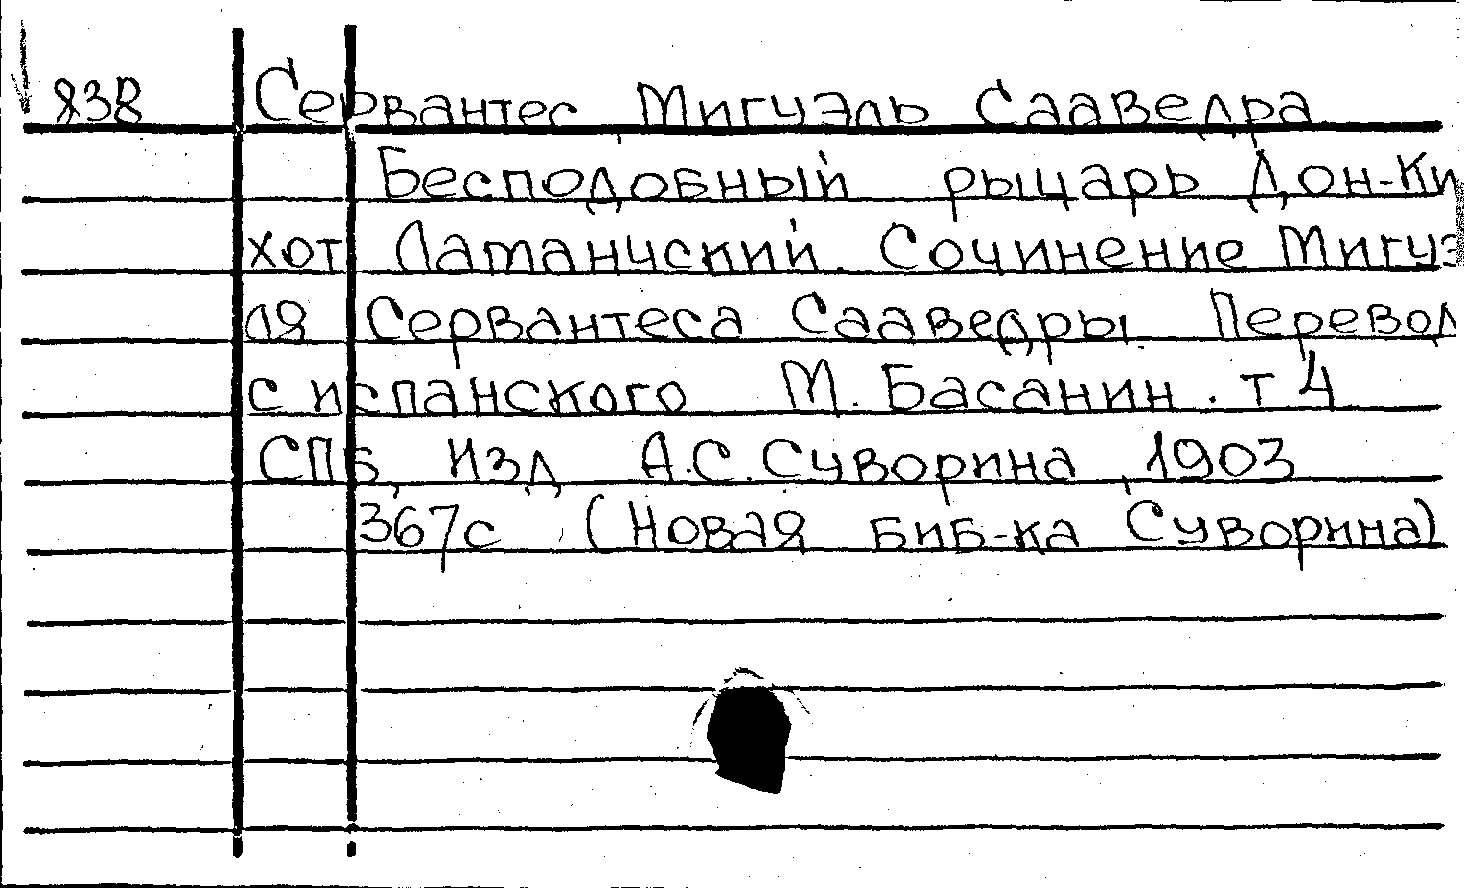 838 Сервантес, Мигуэль Сааведра
Бесподобный рыцарь Дон-Ки
хот Ламанчский. Сочинение Мигуэ
ля Сервантеса Сааведры. Перевод
с испанского М. Басанин. т 4
СПБ, Изд. А.С. Суворина, 1903
367с (Новая биб-ка Суворина)